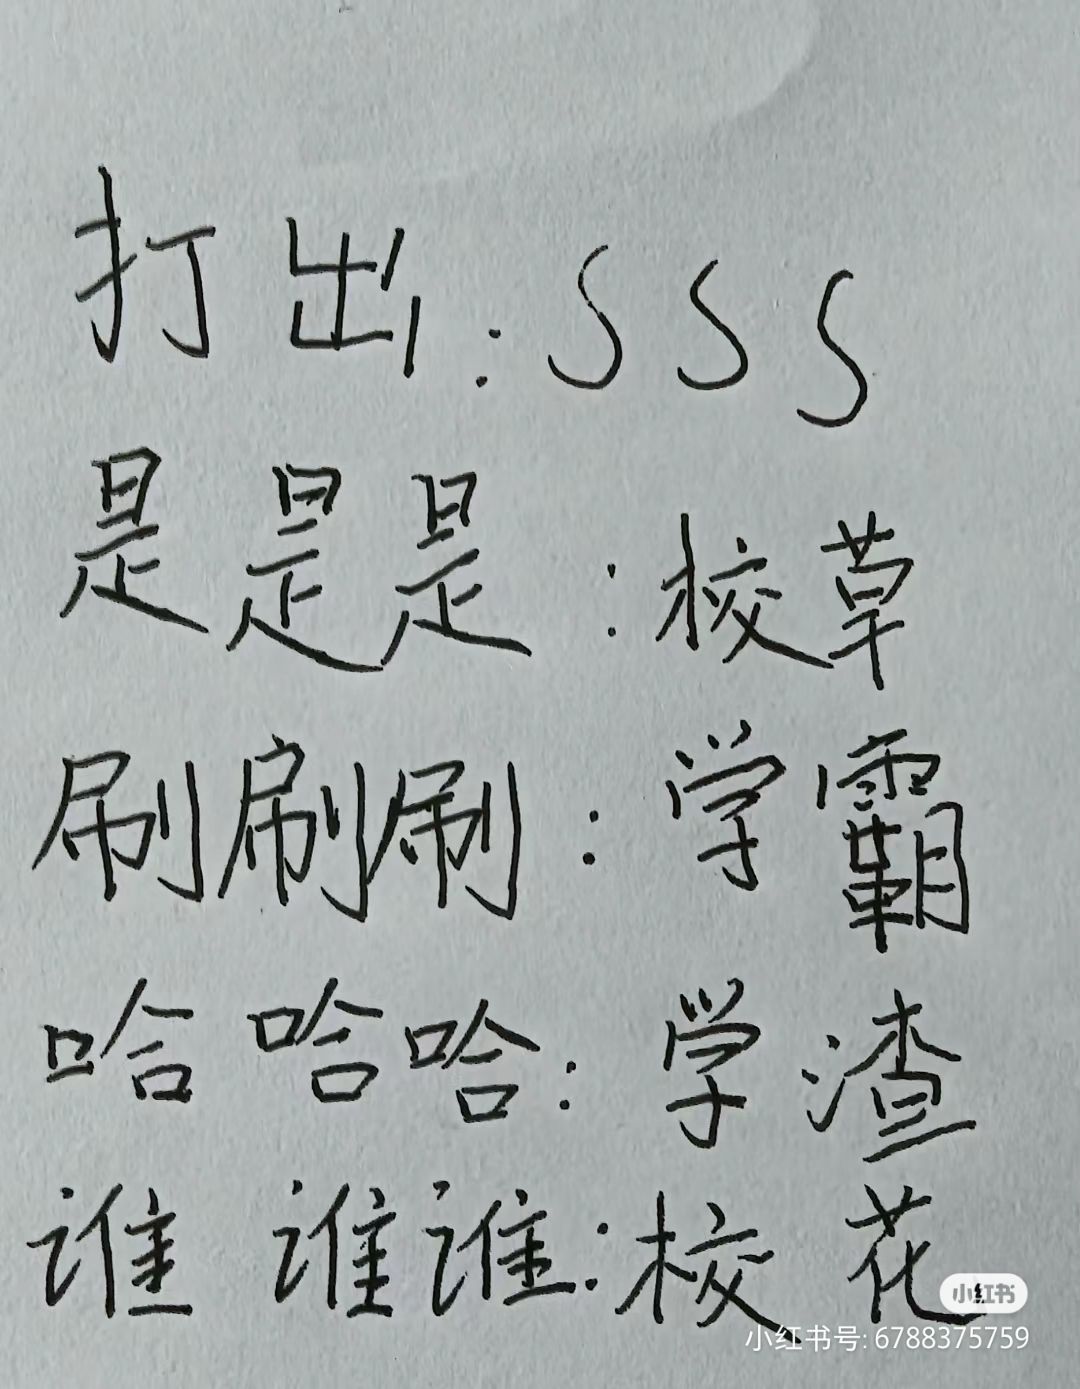 打出:SSS
是是是:校草
刷刷刷:学霸
哈哈哈:学渣
谁谁谁:校花
小红书
小红书号: 6788375759